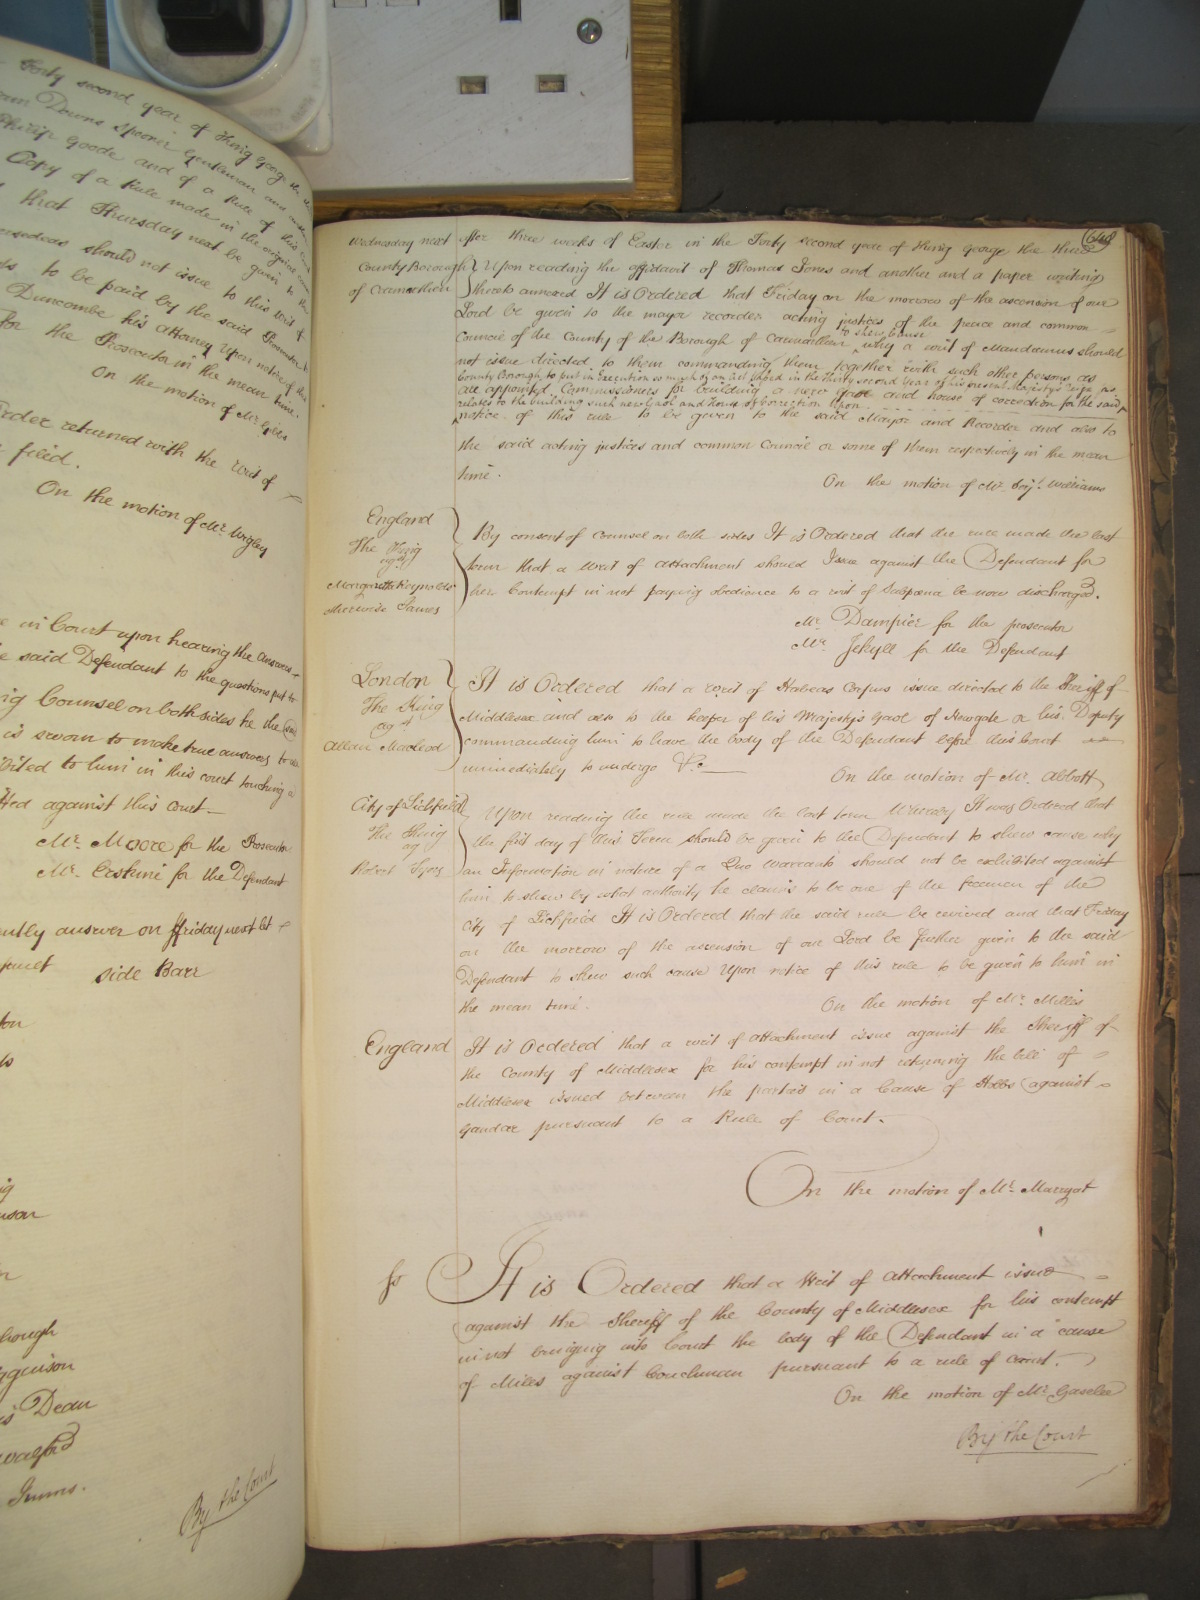 Forty second year of King George the
Downs Spooner Gentleman and
Philip Goode and of a Rule of this
Copy of a Rule made in the original
that Thursday next be given to the
should not issue to this writ of
to be paid by the said
Duncombe his attorney upon notice of this
for the Prosecutor in the mean time.
On the motion of Mr.
Order returned with the writ of
filed.
On the motion of Mr. Wigley
in Court upon hearing the answers
said Defendant to the questions put to
Counsel on both sides he the said
is sworn to make true answers to
to him in this court touching a
against this court
Mr. Moore for the Prosecutor
Mr. Erskine for the Defendant
answer on ffriday next let
side Barr
Dean
By the Court
648
Wednesday next after three weeks of Easter in the Forty second year of King George the third
County Borough of Carmarthen
Upon reading the affidavit of Thomas Jones and another and a paper writing
thereto annexed It is Ordered that Friday on the morrow of the ascension of our
Lord be given to the mayor recorder acting justices of the peace and common
Council of the County of the Borough of Carmarthen to shew cause why a writ of Mandamus should
not issue directed to them commanding them together with such other persons as
County Borough to put in Execution so much of an act passed in the thirty second Year of his present Majesty's reign as
are appointed Commissioners for building a new gaol and house of correction for the said
relates to the building such new Gaol and House of Correction Upon
notice of this rule to be given to the said Mayor and Recorder and also to
the said acting justices and common Council or some of them respectively in the mean
time.
On the motion of Mr. Serjt. Williams
England
The King
agst
Margaretta Reynolds
otherwise James
By consent of Counsel on both sides It is Ordered that the rule made the last
term that a Writ of attachment should Issue against the Defendant for
her Contempt in not paying obedience to a writ of Subpœna be now discharged.
Mr. Dampier for the prosecutor
Mr. Jekyll for the Defendant
London
The King
agst
Allan Macleod
It is Ordered that a writ of Habeas Corpus issue directed to the Sheriff of
Middlesex and also to the keeper of his Majesty's Gaol of Newgate or his Deputy
commanding him to have the body of the Defendant before this Court
immediately to undergo &c
On the motion of Mr. Abbott
City of Lichfield
The King
ag
Robert
Upon reading the rule made the last term Whereby It was Ordered that
the first day of this Term should be given to the Defendant to shew cause why
an Information in nature of a Quo Warranto should not be exhibited against
him to shew by what authority he claims to be one of the freemen of the
City of Lichfield It is Ordered that the said rule be revived and that Friday
on the morrow of the ascension of our Lord be further given to the said
Defendant to shew such cause Upon notice of this rule to be given to him in
the mean time.
On the motion of Mr. Milles
England
It is Ordered that a writ of attachment issue against the Sheriff of
the County of Middlesex for his contempt in not returning the bill of
Middlesex issued between the parties in a Cause of Hobbs against
Gandar pursuant to a Rule of Court.
On the motion of Mr. Marryat
It is Ordered that a Writ of attachment issue
against the Sheriff of the County of Middlesex for his contempt
in not bringing into Court the body of the Defendant in a cause
of Miles against Couchman pursuant to a rule of court.
On the motion of Mr. Gaselee
By the Court